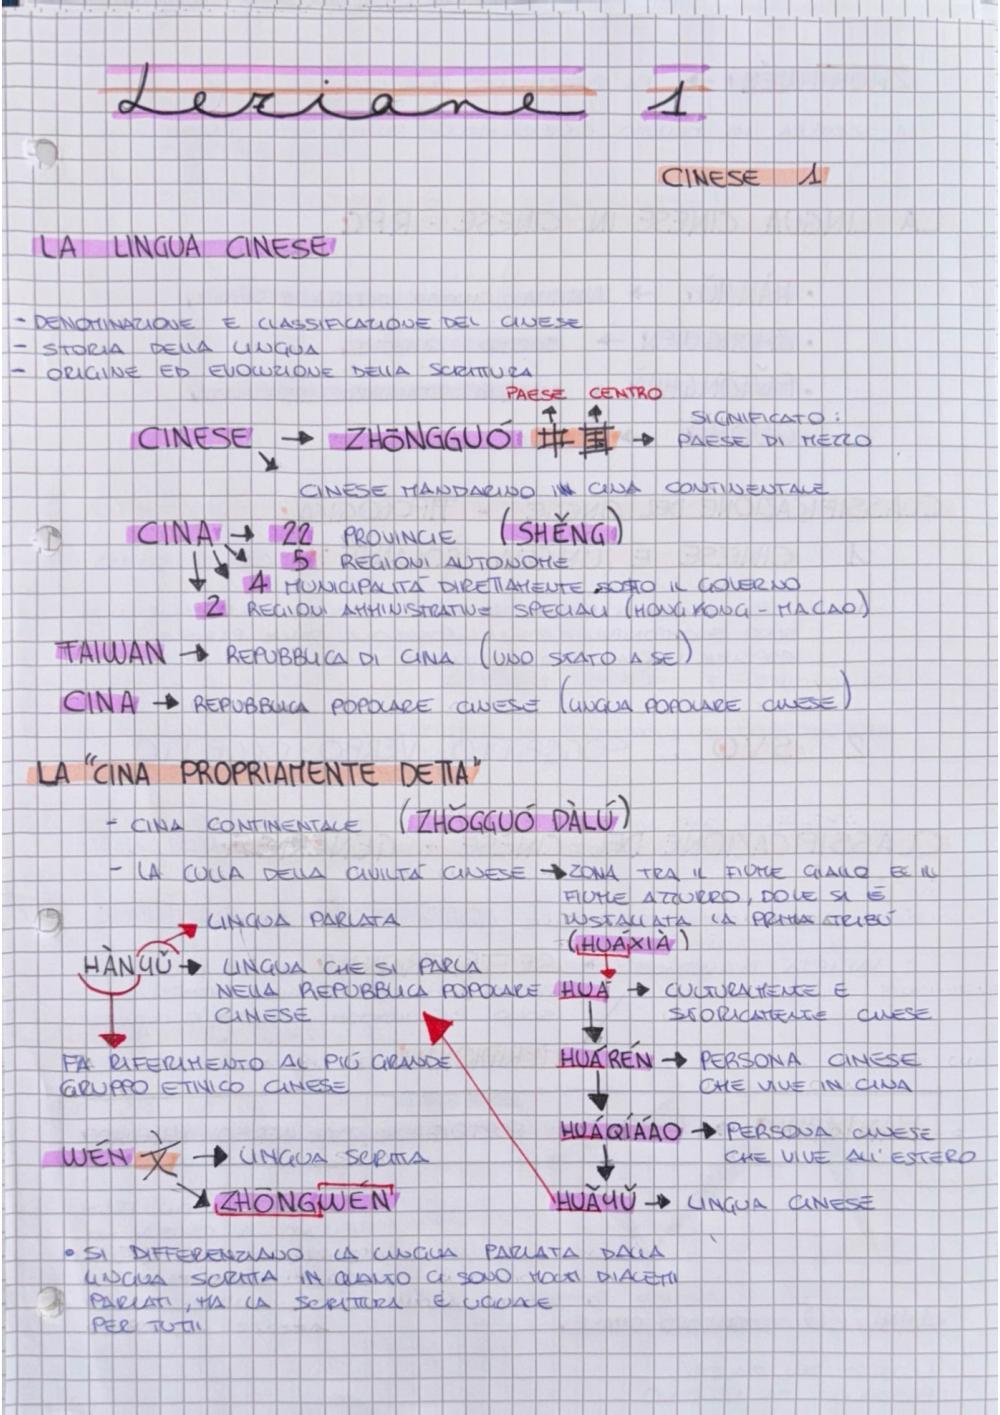 Lezione 1
CINESE 1
LA LINGUA CINESE
- DENOMINAZIONE E CLASSIFICAZIONE DEL CINESE
- STORIA DELLA LINGUA
- ORIGINE ED EVOLUZIONE DELLA SCRITTURA
PAESE CENTRO
CINESE → ZHŌNGGUÓ → SIGNIFICATO:
PAESE DI MEZZO
CINESE MANDARINO IN CINA CONTINENTALE
CINA → 22 PROVINCIE (SHĚNG)
5 REGIONI AUTONOME
4 MUNICIPALITÀ DIRETTAMENTE SOTTO IL GOVERNO
2 REGIONI AMMINISTRATIVE SPECIALI (HONG KONG - MACAO)
TAIWAN → REPUBBLICA DI CINA (UNO STATO A SE)
CINA → REPUBBLICA POPOLARE CINESE (LINGUA POPOLARE CINESE)
LA "CINA PROPRIAMENTE DETTA"
- CINA CONTINENTALE (ZHŎGGUÓ DÀLÚ)
- LA CULLA DELLA CIVILTÀ CINESE → ZONA TRA IL FIUME GIALLO E IL
FIUME AZZURRO, DOVE SI È
INSTALLATA LA PRIMA TRIBÙ
(HUAXIÀ)
LINGUA PARLATA
HÀNYǓ → LINGUA CHE SI PARLA
NELLA REPUBBLICA POPOLARE
CINESE
FA RIFERIMENTO AL PIÙ GRANDE
GRUPPO ETNICO CINESE
HUÁ → CULTURALMENTE E
STORICAMENTE CINESE
HUÁRÉN → PERSONA CINESE
CHE VIVE IN CINA
HUÁQÍÁAO → PERSONA CINESE
CHE VIVE ALL'ESTERO
HUĂYŬ → LINGUA CINESE
WÉN 文 → LINGUA SCRITTA
ZHŌNGWÉN
• SI DIFFERENZIANO LA LINGUA PARLATA DALLA
LINGUA SCRITTA IN QUANTO CI SONO MOLTI DIALETTI
PARLATI, MA LA SCRITTURA È UGUALE
PER TUTTI